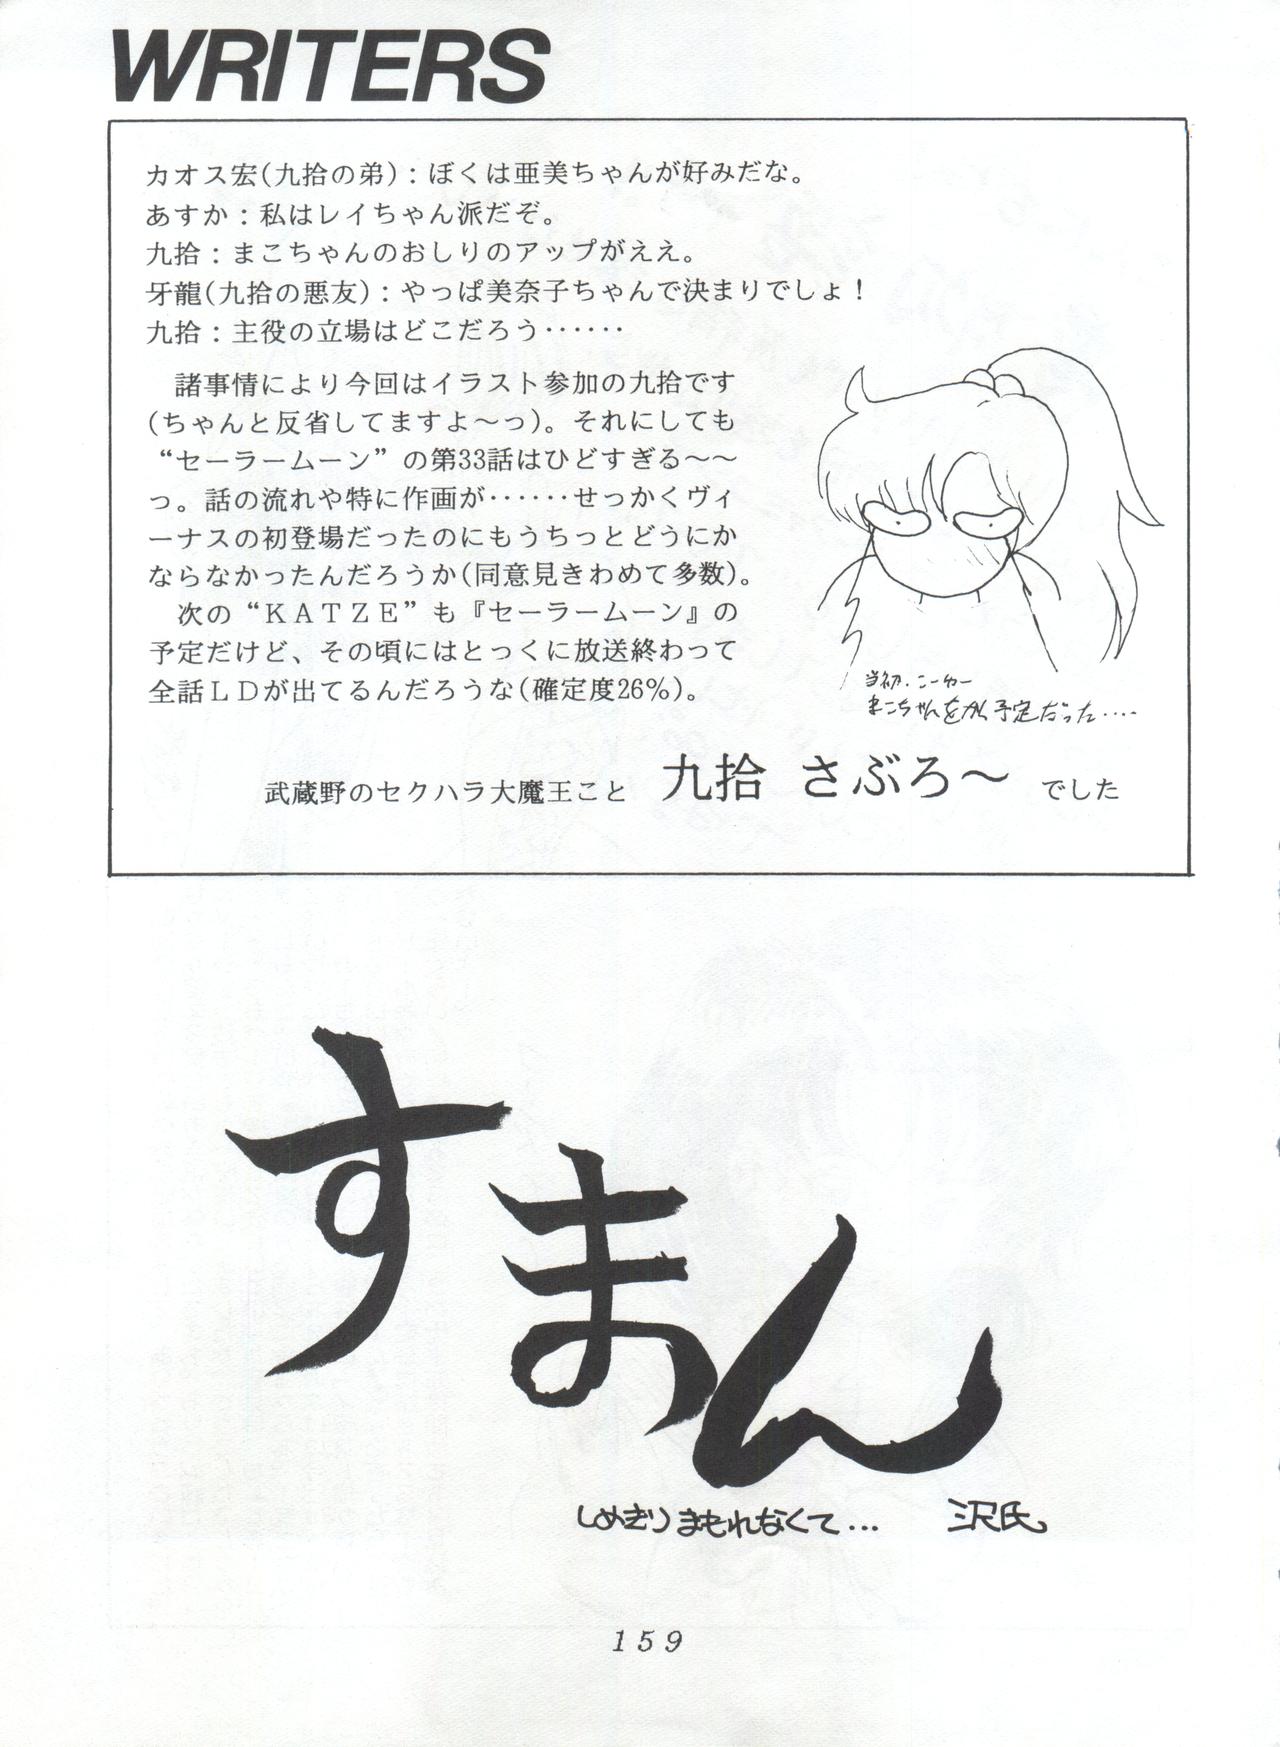 WRITERS
カオス宏(九拾の弟)：ぼくは亜美ちゃんが好みだな。
あすか：私はレイちゃん派だぞ。
九拾：まこちゃんのおしりのアップがええ。
牙龍(九拾の悪友)：やっぱ美奈子ちゃんで決まりでしょ！
九拾：主役の立場はどこだろう‥‥‥
諸事情により今回はイラスト参加の九拾です
(ちゃんと反省してますよ～っ)。それにしても
“セーラームーン”の第33話はひどすぎる～～
っ。話の流れや特に作画が‥‥‥せっかくヴィ
ーナスの初登場だったのにもうちっとどうにか
ならなかったんだろうか(同意見きわめて多数)。
次の“ＫＡＴＺＥ”も『セーラームーン』の
予定だけど、その頃にはとっくに放送終わって
全話ＬＤが出てるんだろうな(確定度26%)。
当初．こーゆー
まこちゃんをかく予定だった‥‥
武蔵野のセクハラ大魔王こと 九拾 さぶろ～ でした
すまん
しめきりまもれなくて… 沢氏
159